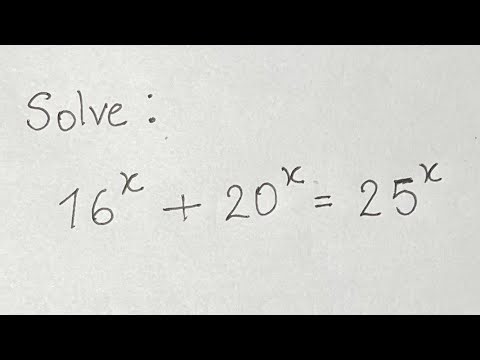 Solve:
16^x + 20^x = 25^x